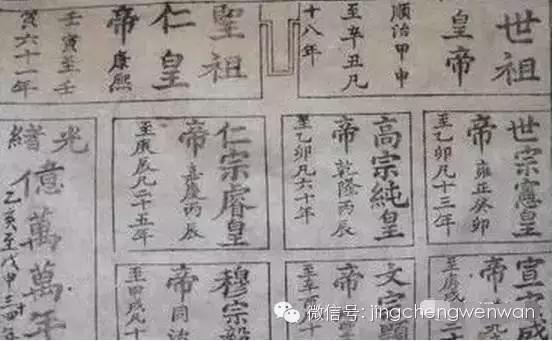 世祖
皇帝
順治甲申
至辛丑凡
十八年
聖祖
仁皇
帝康熙
壬寅至壬
寅六十一年
世宗憲皇
帝雍正癸卯
至乙卯凡十三年
高宗純皇
帝乾隆丙辰
至乙卯凡六十年
仁宗睿皇
帝嘉慶丙辰
至庚辰凡二十五年
宣宗成
帝
文宗顯
帝
穆宗毅
帝同治
至甲戌凡十
光緒
億萬萬年
乙亥至戊申三十四年
微信号: jingchengwenwan